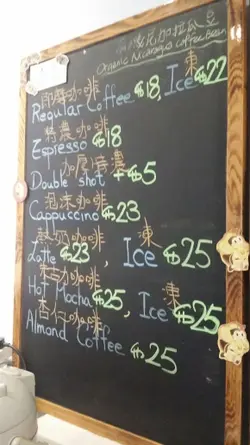 Organic Nicaragua Coffee Bean
即磨咖啡 凍
Regular Coffee $18, Ice $22
特濃咖啡
Espresso $18
加尾特濃
Double shot +$5
泡沫咖啡
Cappuccino $23
鮮奶咖啡 凍
Latte $23, Ice $25
朱古咖啡 凍
Hot Mocha $25, Ice $25
杏仁咖啡
Almond Coffee $25